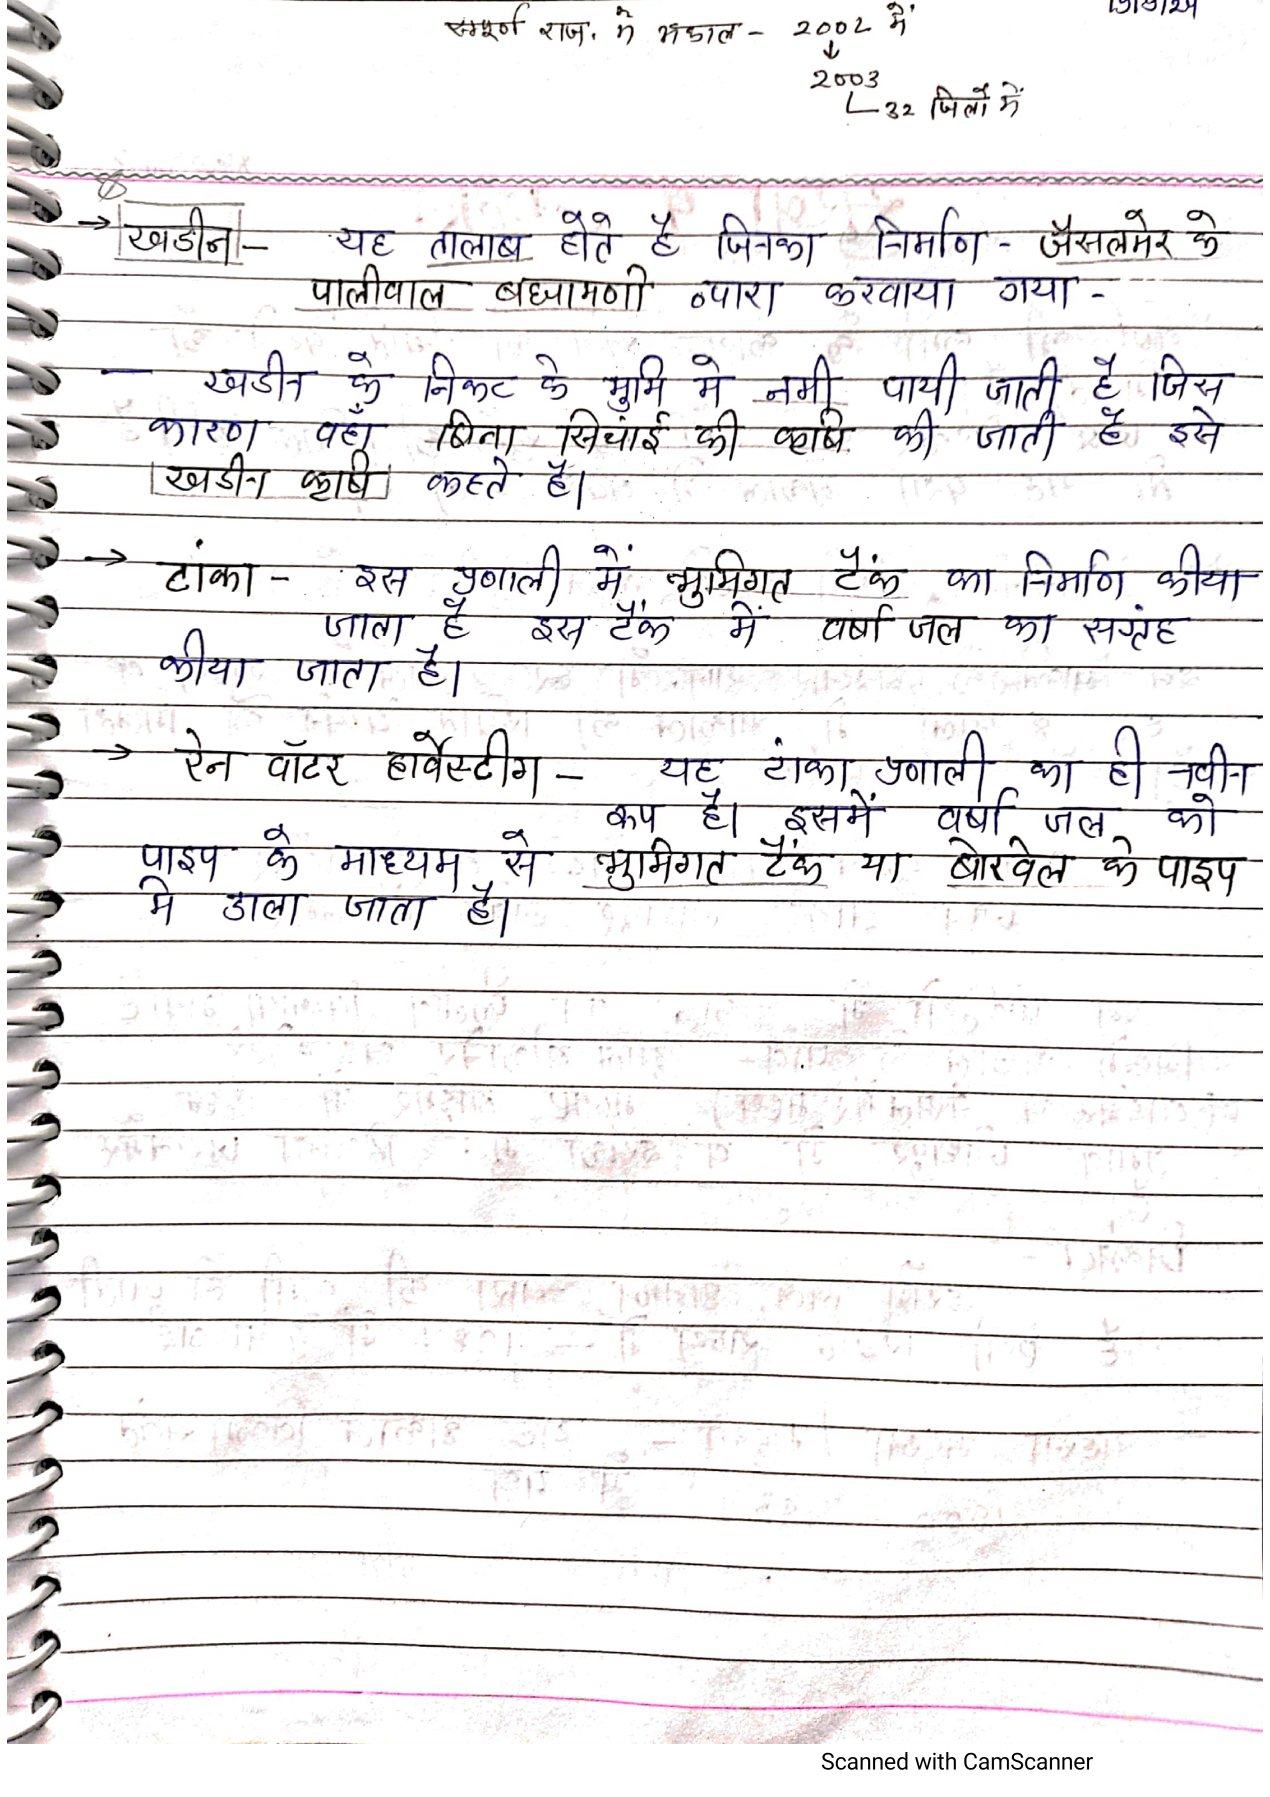 सम्पूर्ण राज. में अकाल - 2002 में
↓
2003
└ 32 जिलों में
→ खडीन - यह तालाब होते है जिनका निर्माण - जैसलमेर के
पालीवाल ब्राह्मणों द्वारा करवाया गया -
- खडीन के निकट के भुमि मे नमी पायी जाती है जिस
कारण वहाँ बिना सिचांई की कृषि की जाती है इसे
खडीन कृषि कहते है।
→ टांका - इस प्रणाली में भुमिगत टैंक का निर्माण कीया
जाता है इस टैंक में वर्षा जल का सग्रंह
कीया जाता है।
→ रेन वॉटर हार्वेस्टीग - यह टांका प्रणाली का ही नवीन
रूप है। इसमें वर्षा जल को
पाइप के माध्यम से भुमिगत टैंक या बोरवेल के पाइप
मे डाला जाता है।
Scanned with CamScanner